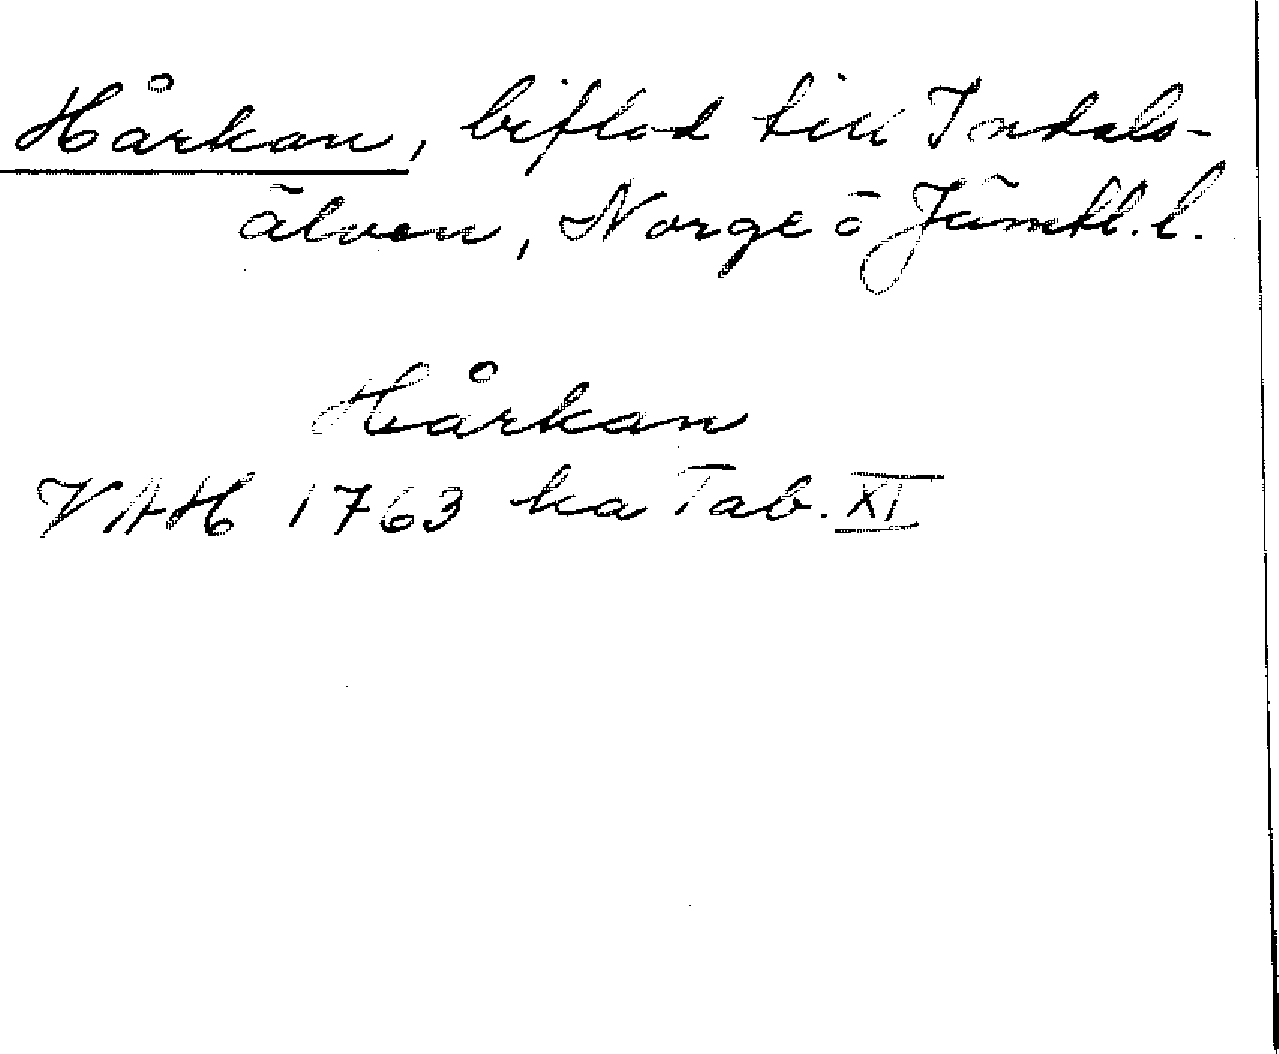 Hårkan, biflod till Indals-
älven, Norge o Jämtl.l.
Hårkan
VAH 1763 ka Tab. XI